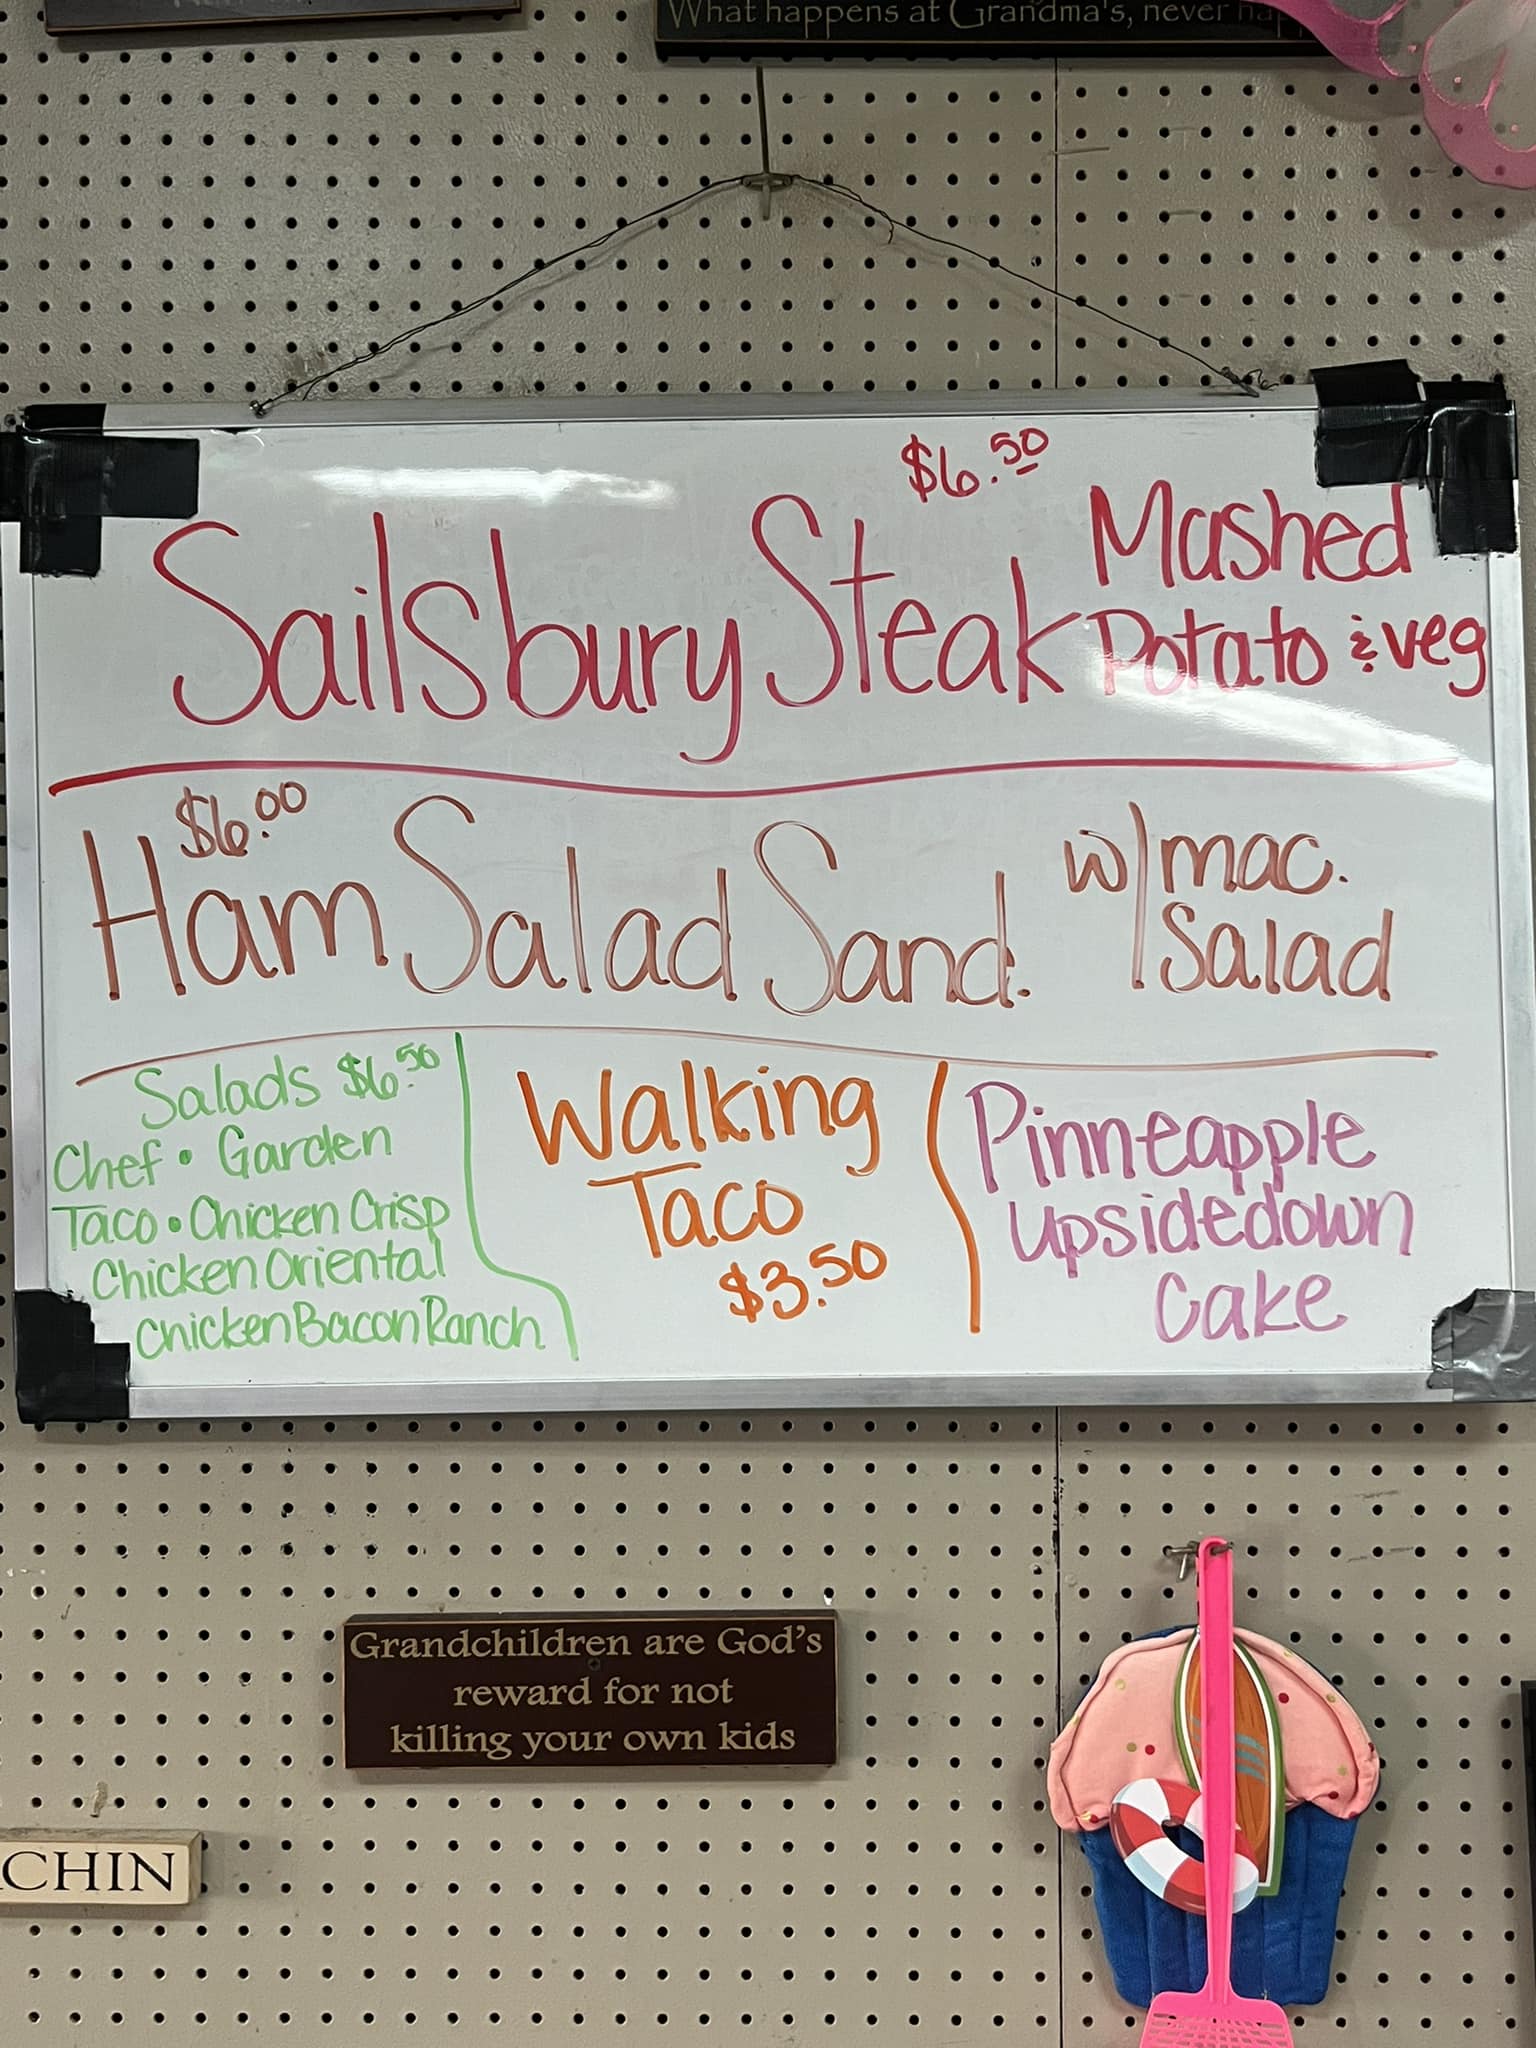 What happens at Grandma's, never
$6.50
Sailsbury Steak Mashed
Potato & veg
$6.00
Ham Salad Sand. w/ mac.
Salad
Salads $6.50
Chef • Garden
Taco • Chicken Crisp
Chicken Oriental
Chicken Bacon Ranch
Walking
Taco
$3.50
Pinneapple
upsidedown
cake
Grandchildren are God's
reward for not
killing your own kids
CHIN